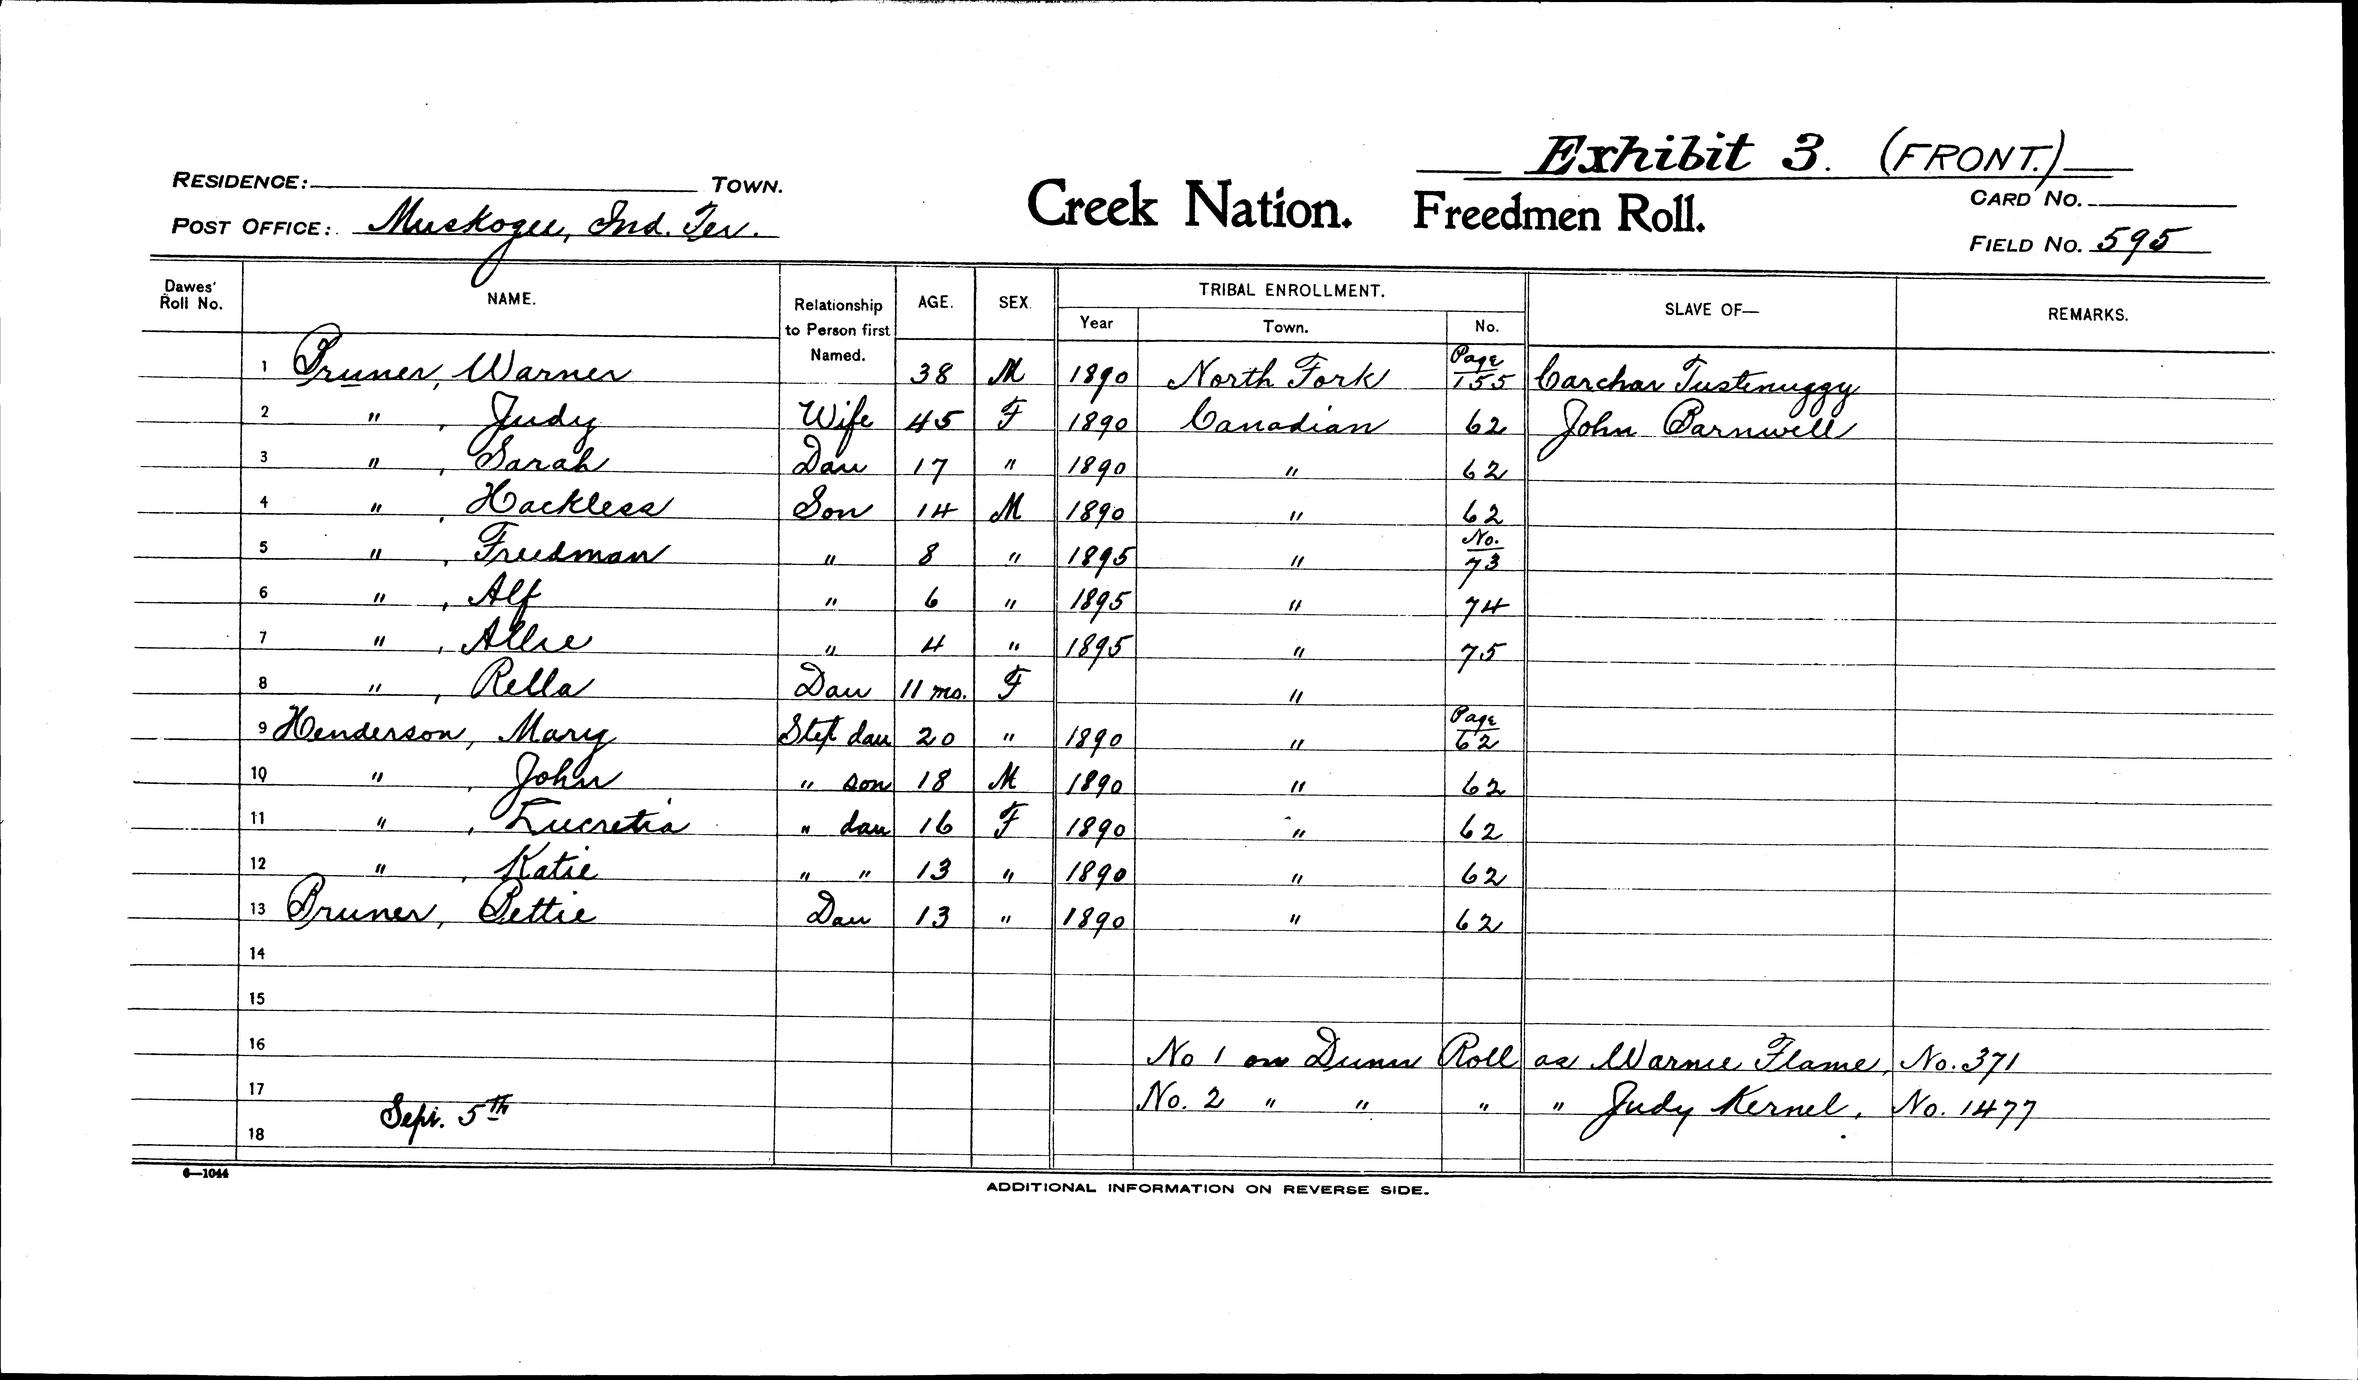 Exhibit 3. (FRONT.)
RESIDENCE: TOWN.
CARD NO.
POST OFFICE: Muskogee, Ind. Ter.
Creek Nation. Freedmen Roll.
FIELD NO. 595
Dawes' Roll No. NAME. Relationship to Person first Named. AGE. SEX. TRIBAL ENROLLMENT. Year Town. No. SLAVE OF— REMARKS.
1 Pruner, Warner 38 M 1890 North Fork Page 155 Carchar Tustenuggy
2 " , Judy Wife 45 F 1890 Canadian 62 John Barnwell
3 " , Sarah Dau 17 " 1890 " 62
4 " , Hackless Son 14 M 1890 " 62
5 " , Freedman " 8 " 1895 " No. 73
6 " , Alf " 6 " 1895 " 74
7 " , Allie " 4 " 1895 " 75
8 " , Rella Dau 11 mo. F "
9 Henderson, Mary Step dau 20 " 1890 " Page 62
10 " , John " son 18 M 1890 " 62
11 " , Lucretia " dau 16 F 1890 " 62
12 " , Katie " " 13 " 1890 " 62
13 Pruner, Bettie Dau 13 " 1890 " 62
14
15
16 No 1 on Dunn Roll as Warnie Flame, No. 371
17 No. 2 " " " " Judy Kernel, No. 1477
Sept. 5th
18
6—1044
ADDITIONAL INFORMATION ON REVERSE SIDE.